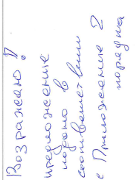 Возражаю!
предложение
подано в
соответствии
с Приложение 2
порядка